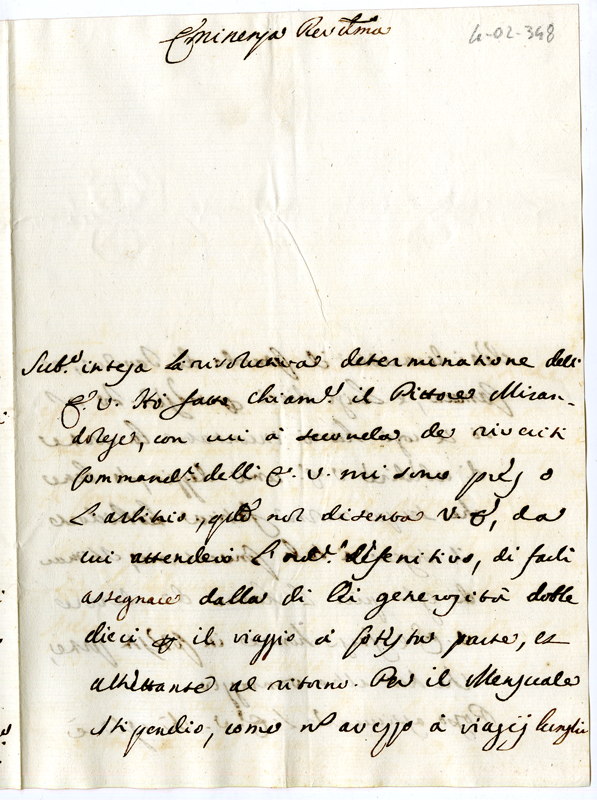 Eminenza Rev.ma
4-02-348
Sub.o intesa La risolutiva determinatione dell'
E. V. Hò fatto chiam.e il Pittore Miran-
dolese, con cui à seconda de riveriti
Command.i dell' E. V. mi sono preso
L'arbitrio, non disenta V. E., da
cui attenderò L'ord.e difenitivo, di farli
assegnare dalla di lei generosità doble
dieci il viaggio à parte, et
altrettante al ritorno. Per il Mensuale
Stipendio, come avezzo à viaggij lunghi